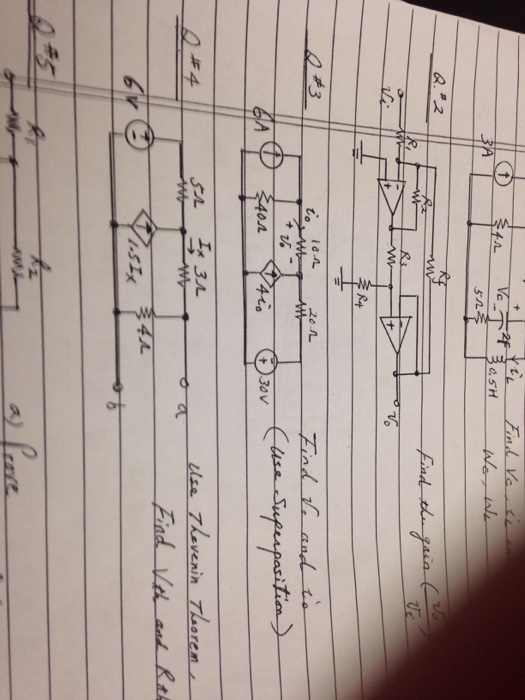 3A
4Ω
5Ω
+
Vc
-
2F
iL
0.5H
Find Vc, iL
Wc, WL
Q.#2
Vi
R1
R2
R3
R4
Rf
-
+
-
+
Vo
Find the gain (Vo
Vi
Q#3
6A
40Ω
io
10Ω
+ Vo -
4io
20Ω
30V
Find Vo and io
(Use Superposition)
Q#4
6V
5Ω
Ix
3Ω
1.5Ix
4Ω
a
b
Use Thevenin Theorem,
Find Vth and Rth
Q#5
R1
R2
a) Prove